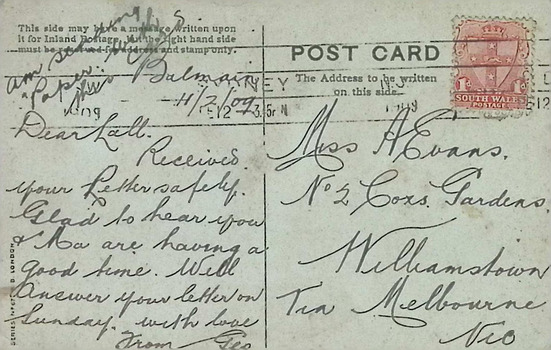 This side may have a message written upon
it for Inland Postage, but the right hand side
must be reserved for address and stamp only.
am sending
Paper.
Balmain
11/2/09
Dear Lall.
Received
your Letter safely.
Glad to hear you
& Ma are having a
good time. Will
Answer your letter on
Sunday. with love
From Geo
POST CARD
The Address to be written
on this side.
SOUTH WALES
POSTAGE
Miss A Evans.
No 2 Coxs. Gardens.
Williamstown
Via Melbourne
Vic